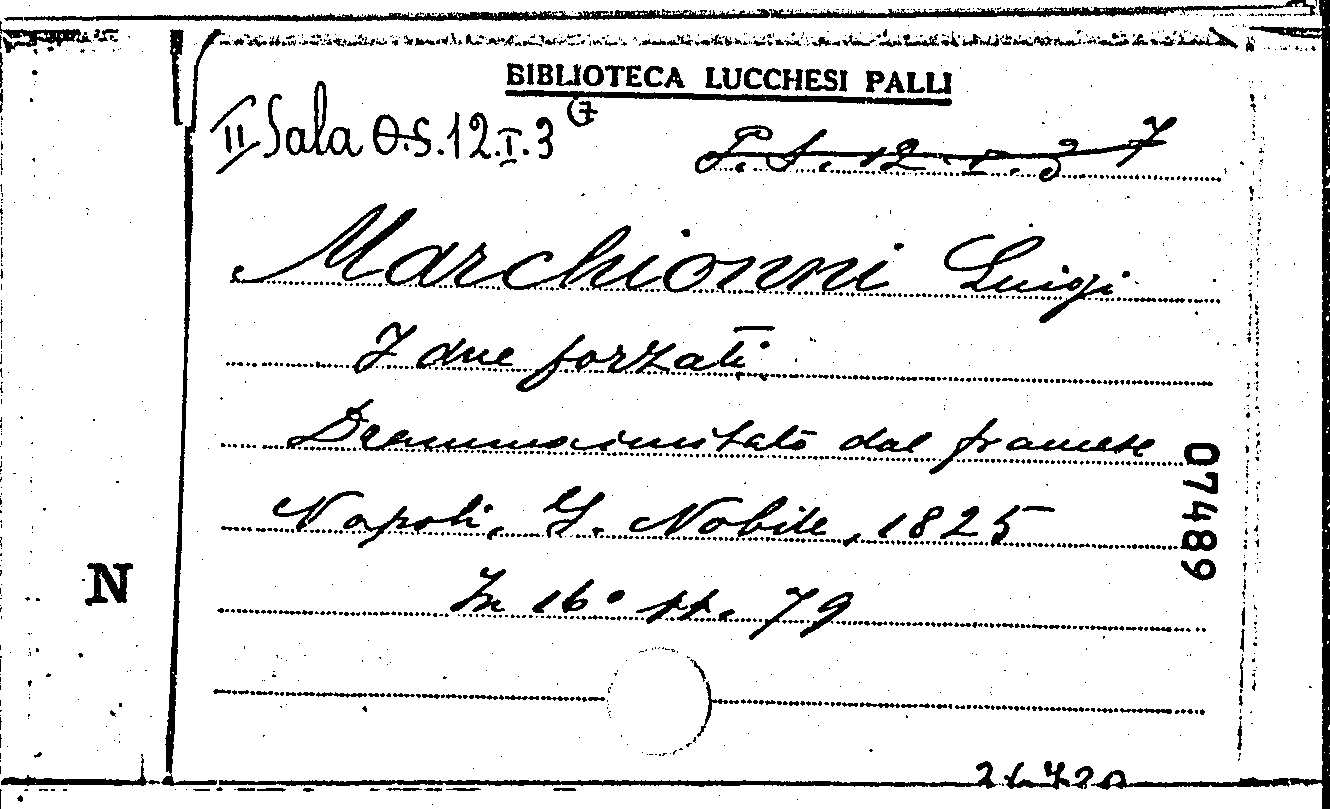 BIBLIOTECA LUCCHESI PALLI
II Sala O.S.12.I.3 (7
P. S. 12. I. 3 7
Marchionni Luigi
I due forzati
Dramma imitato dal francese
Napoli, G. Nobile, 1825
In 16° pp. 79
N
07489